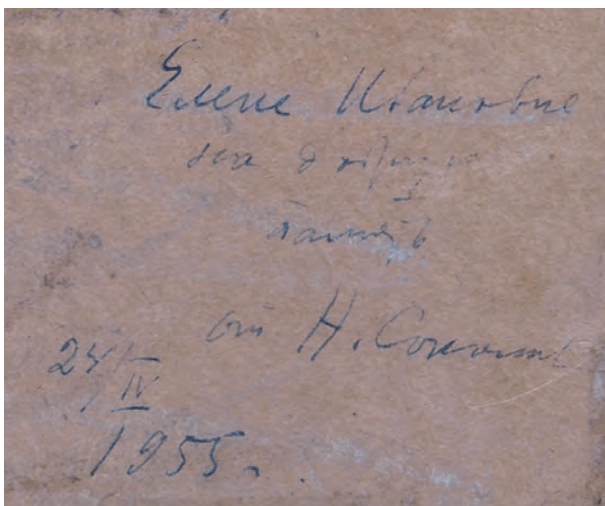 Елене Ивановне
на добрую
память
от Н.
24/IV
1955.